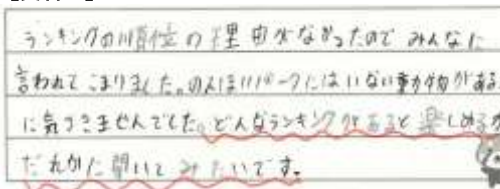 ランキングの順位の理由がなかったので みんなに
言われてこまりました。のんほいパークにはいない動物がある
に気づきませんでした。どんなランキングがあると楽しめるか
だれかに聞いてみたいです。